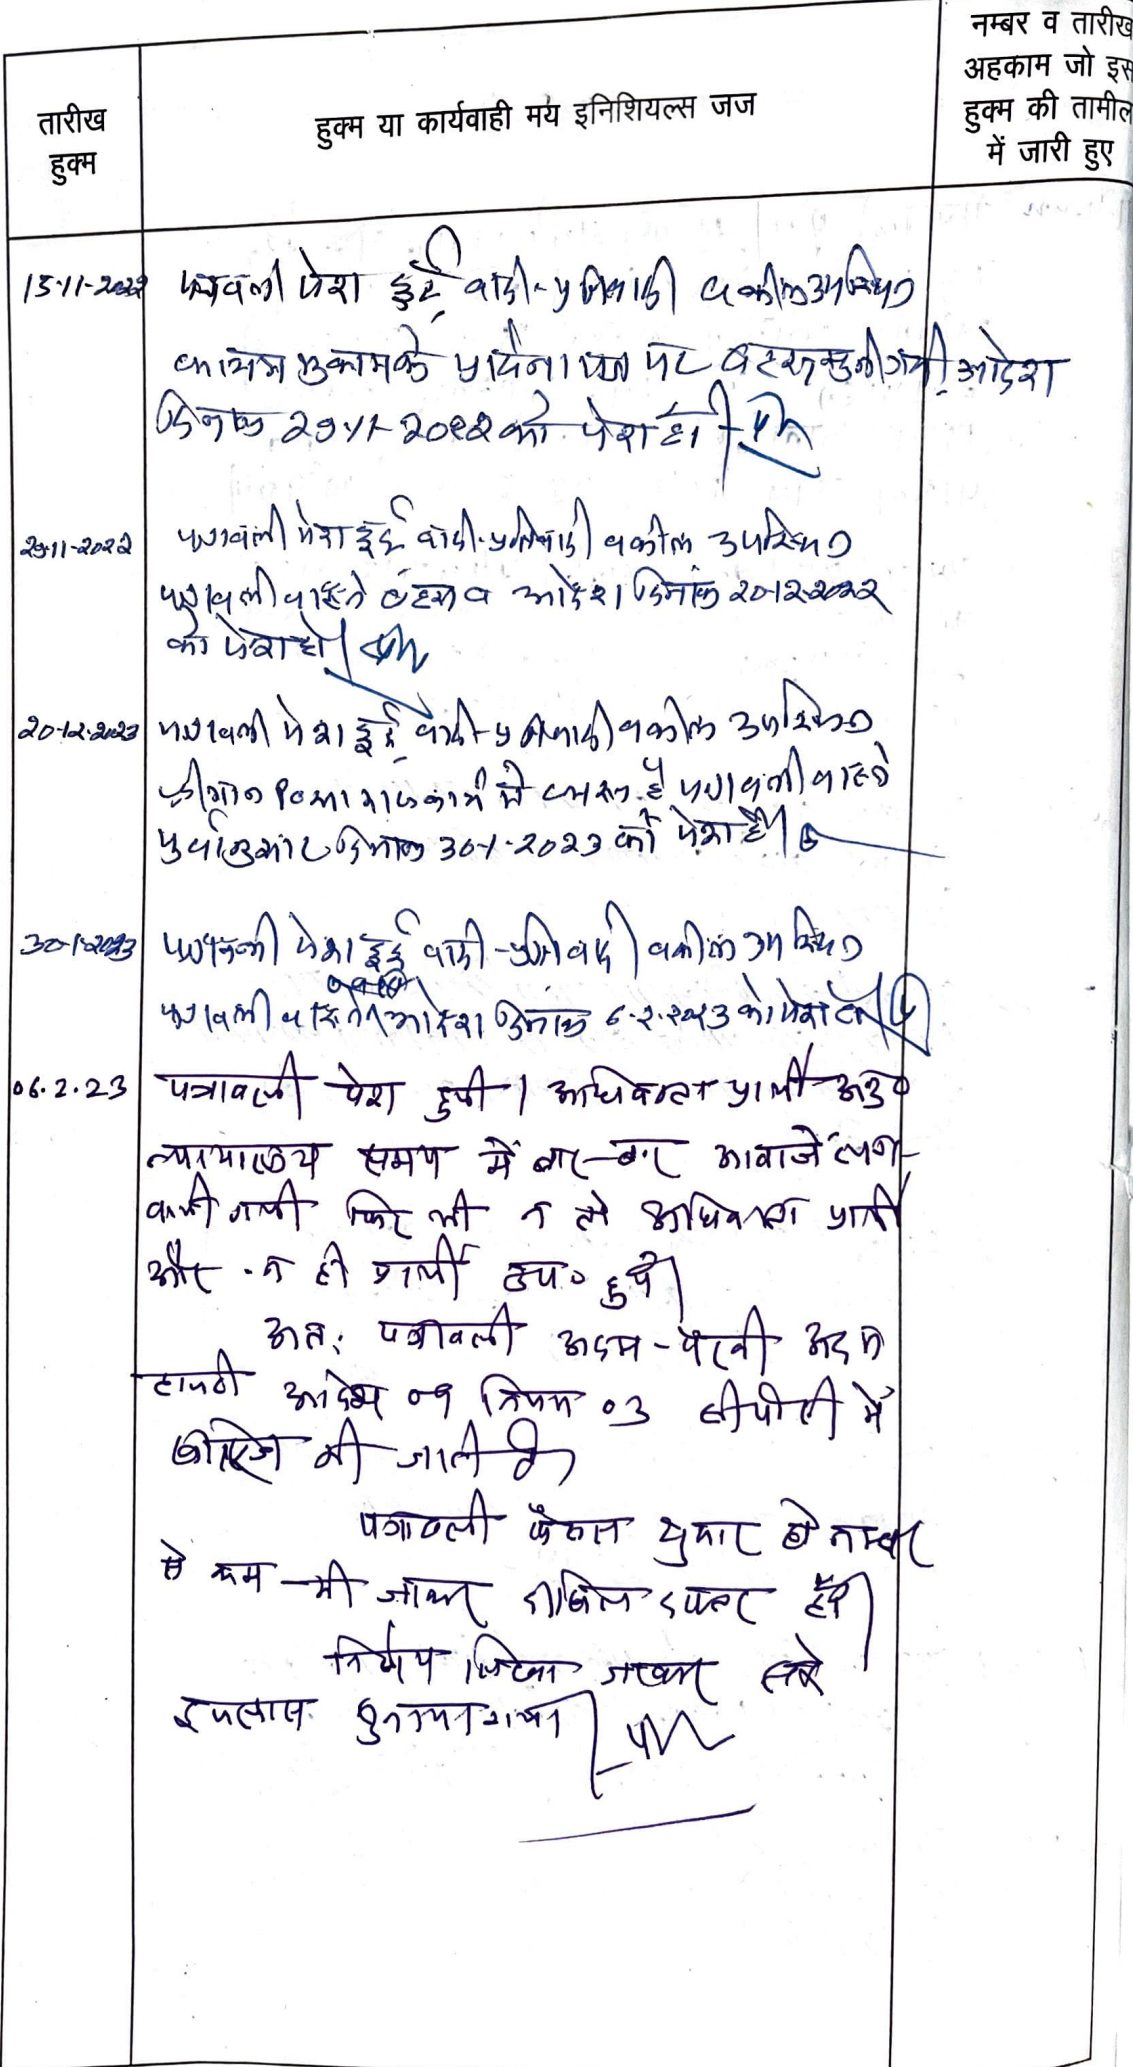 नम्बर व तारीख
अहकाम जो इस
हुक्म की तामील
में जारी हुए
तारीख
हुक्म
हुक्म या कार्यवाही मय इनिशियल्स जज
15-11-2022 पत्रावली पेश हुई वादी-प्रतिवादी वकील उपस्थित
कायम मुकाम के प्रार्थना पत्र पर बहस सुनी गयी आदेश
दिनांक 29-11-2022 को पेश हो।
29-11-2022 पत्रावली पेश हुई वादी-प्रतिवादी वकील उपस्थित
पत्रावली वास्ते बहस व आदेश दिनांक 20-12-2022
को पेश हो।
20-12-2023 पत्रावली पेश हुई वादी-प्रतिवादी वकील उपस्थित
कार्य में व्यस्त है पत्रावली वास्ते
पुर्वानुसार दिनांक 30-1-2023 को पेश हो।
30-1-2023 पत्रावली पेश हुई वादी-प्रतिवादी वकील उपस्थित
पत्रावली वास्ते आदेश दिनांक 6.2.2023 को पेश हो।
06.2.23 पत्रावली पेश हुयी। अधिवक्ता प्रार्थी अनु०
न्यायालय समय में बार-बार आवाजें लग-
वायी गयी फिर भी न तो अधिवक्ता प्रार्थी
और न ही प्रार्थी उप० हुये।
अतः पत्रावली अदम-पैरवी अदम
हाजरी आदेश 09 नियम 03 सीपीसी में
खारिज की जाती है
पत्रावली फैसल शुमार हो नम्बर
से कम की जाकर दाखिल दफ्तर हो।
निर्णय लिखा जाकर सरे
इजलास सुनाया गया।